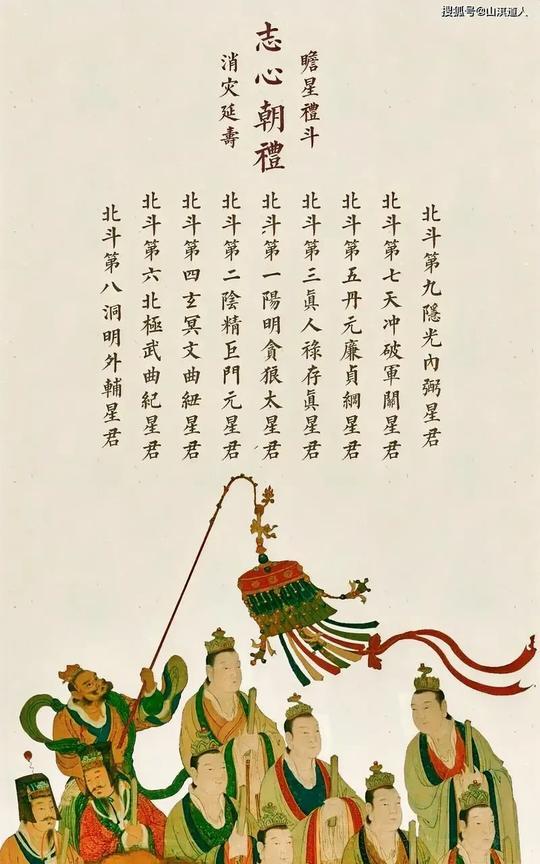 搜狐号@山淇道人
瞻星禮斗
志心朝禮
消灾延壽
北斗第九隱光內弼星君
北斗第七天冲破軍關星君
北斗第五丹元廉貞綱星君
北斗第三眞人祿存眞星君
北斗第一陽明貪狼太星君
北斗第二陰精巨門元星君
北斗第四玄冥文曲紐星君
北斗第六北極武曲紀星君
北斗第八洞明外輔星君